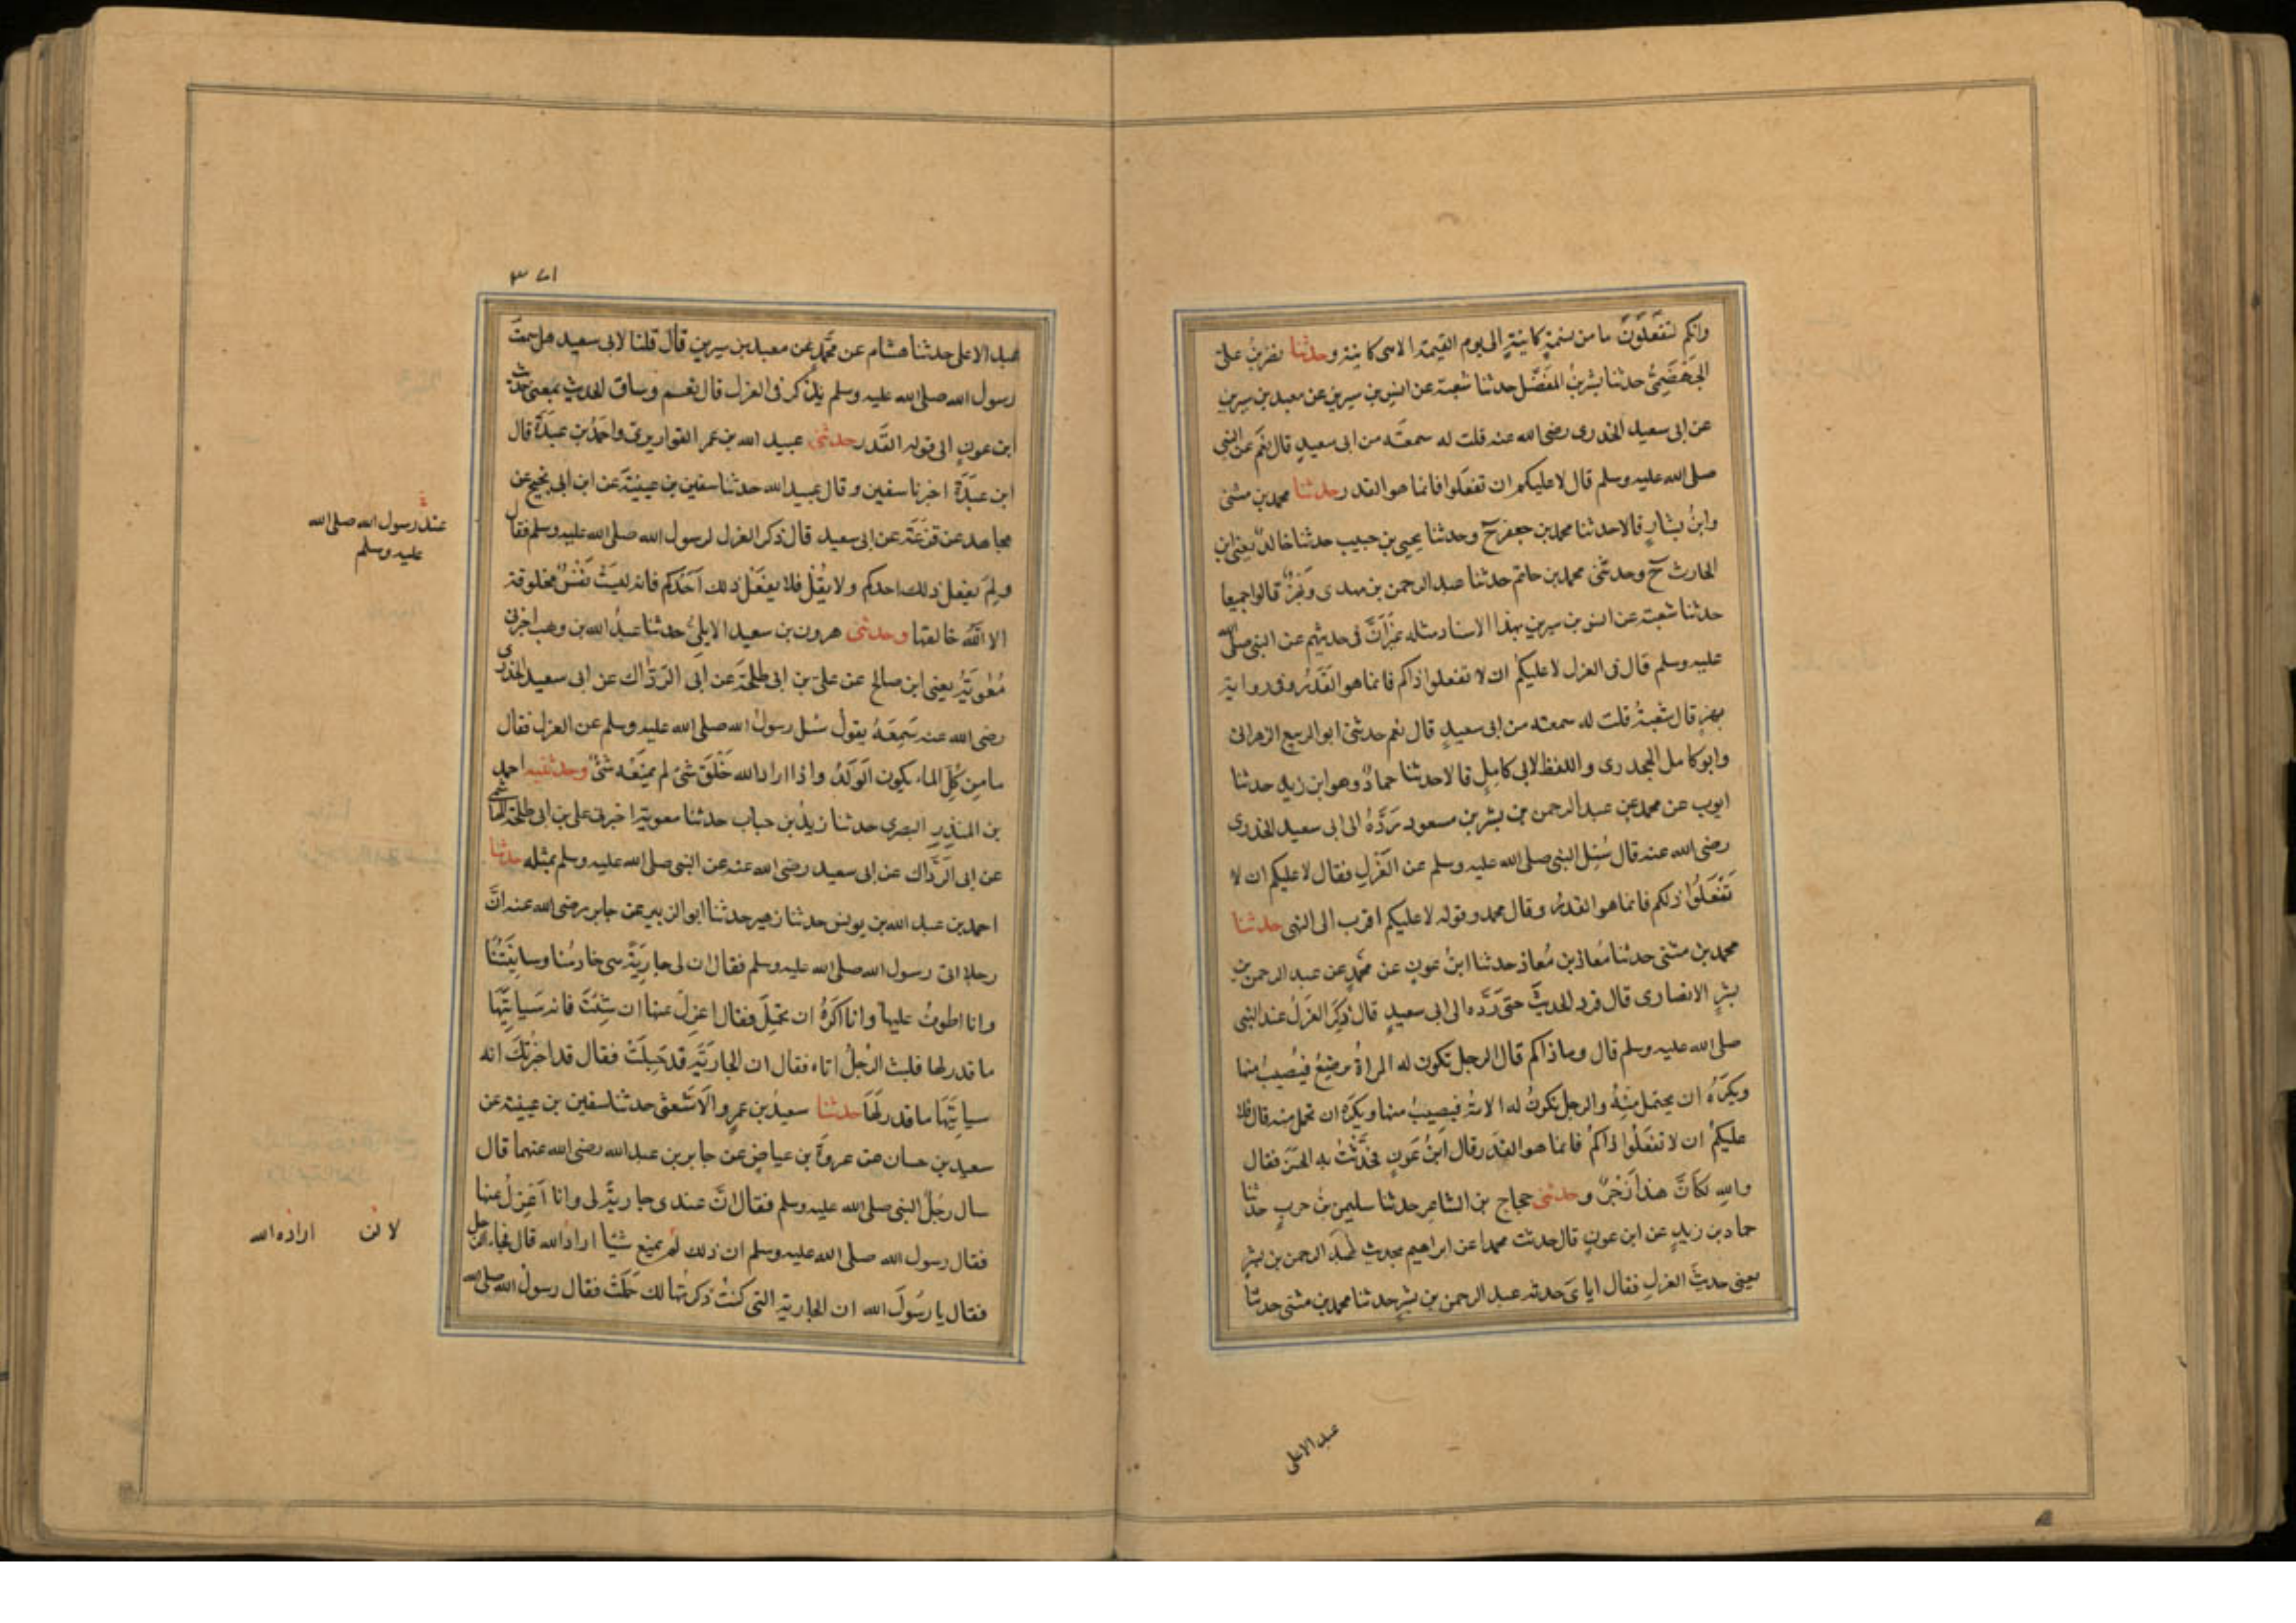 وانكم لتفعلون ما من نسمة كاينة الى يوم القيمة الا هى كاينة وحدثنا نصر بن على
الجهضمى حدثنا بشر بن المفضل حدثنا شعبة عن انس بن سيرين عن معبد بن سيرين
عن ابى سعيد الخدرى رضى الله عنه قلت له سمعته من ابى سعيد قال نعم عن النبى
صلى الله عليه وسلم قال لا عليكم ان تفعلوا فانما هو القدر حدثنا محمد بن مثنى
وابن بشار قالا حدثنا محمد بن جعفر ح وحدثنا يحيى بن حبيب حدثنا خالد يعنى ابن
الحارث ح وحدثنى محمد بن حاتم حدثنا عبد الرحمن بن مهدى وبهز قالوا جميعا
حدثنا شعبة عن انس بن سيرين بهذا الاسناد مثله غير ان فى حديثهم عن النبى صلى الله
عليه وسلم قال فى العزل لا عليكم ان لا تفعلوا ذاكم فانما هو القدر وفى رواية
بهز قال شعبة قلت له سمعته من ابى سعيد قال نعم حدثنى ابو الربيع الزهرانى
وابو كامل الجحدرى واللفظ لابى كامل قالا حدثنا حماد وهو ابن زيد حدثنا
ايوب عن محمد عن عبد الرحمن بن بشر بن مسعود رده الى ابى سعيد الخدرى
رضى الله عنه قال سئل النبى صلى الله عليه وسلم عن العزل فقال لا عليكم ان لا
تفعلوا ذلكم فانما هو القدر وقال محمد وقوله لا عليكم اقرب الى النهى حدثنا
محمد بن مثنى حدثنا معاذ بن معاذ حدثنا ابن عون عن محمد عن عبد الرحمن بن
بشر الانصارى قال فرد الحديث حتى رده الى ابى سعيد قال ذكر العزل عند النبى
صلى الله عليه وسلم قال وما ذاكم قال الرجل تكون له المراة مرضع فيصيب منها
ويكره ان يحتمل منه والرجل تكون له الامة فيصيب منها ويكره ان تحمل منه قال فلا
عليكم ان لا تفعلوا ذاكم فانما هو القدر قال ابن عون فحدثت به الحسن فقال
والله لكان هذا زجر وحدثنى حجاج بن الشاعر حدثنا سليمن بن حرب حدثنا
حماد بن زيد عن ابن عون قال حدثت محمدا عن ابراهيم بحديث عبد الرحمن بن بشر
يعنى حديث العزل فقال اياى حدثه عبد الرحمن بن بشر حدثنا محمد بن مثنى حدثنا
عبد الاعلى
٣٧١
عبد الاعلى حدثنا هشام عن محمد عن معبد بن سيرين قال قلنا لابى سعيد هل سمعت
رسول الله صلى الله عليه وسلم يذكر فى العزل قال نعم وساق الحديث بمعنى حديث
ابن عون الى قوله القدر حدثنى عبيد الله بن عمر القواريرى واحمد بن عبدة قال
ابن عبدة اخبرنا سفين وقال عبيد الله حدثنا سفين بن عيينة عن ابن ابى نجيح عن
مجاهد عن قزعة عن ابى سعيد قال ذكر العزل لرسول الله صلى الله عليه وسلم فقال
ولم يفعل ذلك احدكم ولا يقل فلا يفعل ذلك احدكم فانه ليست نفس مخلوقة
الا الله خالقها وحدثنى هرون بن سعيد الايلى حدثنا عبد الله بن وهب اخبرنى
معوية يعنى ابن صالح عن على بن ابى طلحة عن ابى الوداك عن ابى سعيد الخدرى
رضى الله عنه سمعه يقول سئل رسول الله صلى الله عليه وسلم عن العزل فقال
ما من كل الماء يكون الولد واذا اراد الله خلق شئ لم يمنعه شئ وحدثنيه احمد
بن المنذر البصرى حدثنا زيد بن حباب حدثنا معوية اخبرنى على بن ابى طلحة الهاشمى
عن ابى الوداك عن ابى سعيد رضى الله عنه عن النبى صلى الله عليه وسلم بمثله حدثنا
احمد بن عبد الله بن يونس حدثنا زهير حدثنا ابو الزبير عن جابر رضى الله عنه ان
رجلا اتى رسول الله صلى الله عليه وسلم فقال ان لى جارية هى خادمنا وسانيتنا
وانا اطوف عليها وانا اكره ان تحبل فقال اعزل عنها ان شئت فانه سياتيها
ما قدر لها فلبث الرجل اتاه فقال ان الجارية قد حبلت فقال قد اخبرتك انه
سياتيها ما قدر لها حدثنا سعيد بن عمرو الاشعثى حدثنا سفين بن عيينة عن
سعيد بن حسان عن عروة بن عياض عن جابر بن عبد الله رضى الله عنهما قال
سال رجل النبى صلى الله عليه وسلم فقال ان عندى جارية لى وانا اعزل عنها
فقال رسول الله صلى الله عليه وسلم ان ذلك لم يمنع شيا اراد الله قال فجاء الرجل
فقال يا رسول الله ان الجارية التى كنت ذكرتها لك حملت فقال رسول الله صلى الله
عند رسول الله صلى الله
عليه وسلم
لا لن اراده الله